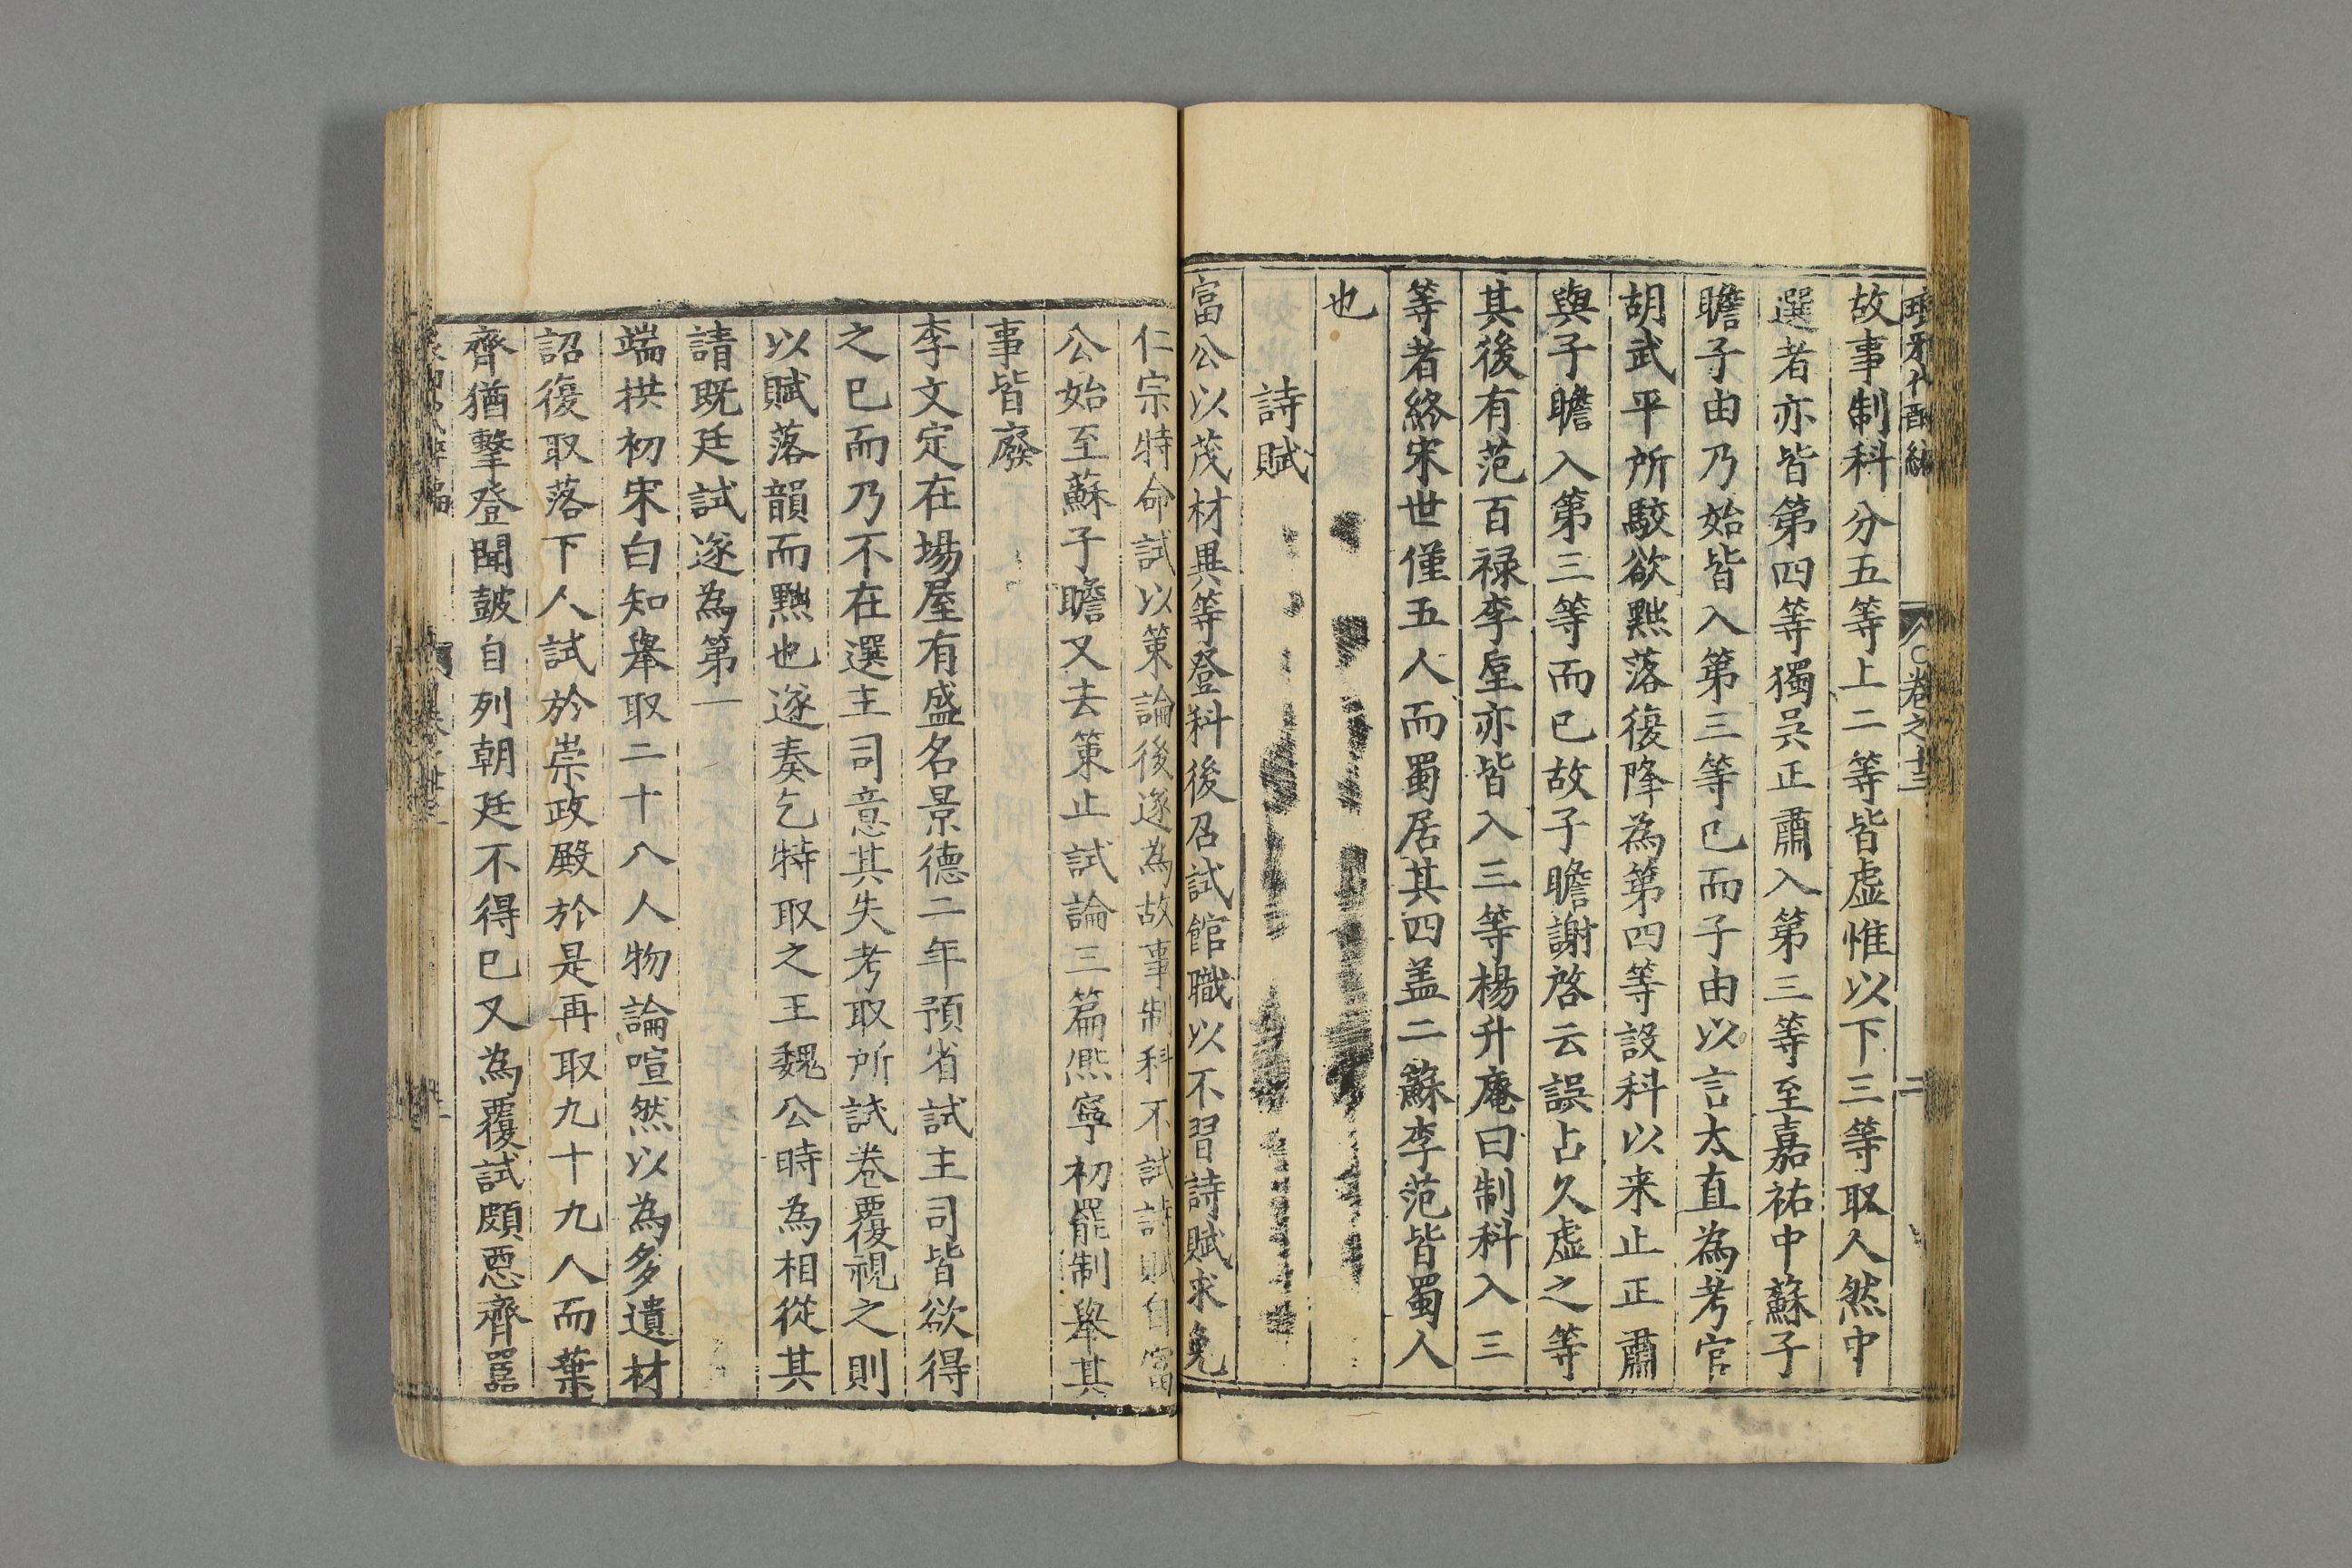 故事制科分五等上二等皆虛惟以下三等取人然中
選者亦皆第四等獨吳正肅入第三等至嘉祐中蘇子
瞻子由乃始皆入第三等已而子由以言太直為考官
胡武平所駁欲黜落復降為第四等設科以来止正肅
與子瞻入第三等而已故子瞻謝啓云誤占久虛之等
其後有范百祿李垕亦皆入三等楊升庵曰制科入三
等者終宋世僅五人而蜀居其四盖二蘇李范皆蜀人
也
詩賦
富公以茂材異等登科後召試館職以不習詩賦求免
仁宗特命試以策論後遂為故事制科不試詩賦自富
公始至蘇子瞻又去策止試論三篇熈寧初罷制舉其
事皆廢
李文定在場屋有盛名景德二年預省試主司皆欲得
之已而乃不在選主司意其失考取所試卷覆視之則
以賦落韻而黜也遂奏乞特取之王魏公時為相從其
請既廷試遂為第一
端拱初宋白知舉取二十八人物論喧然以為多遺材
詔復取落下人試於崇政殿於是再取九十九人而葉
齊猶擊登聞皷自列朝廷不得已又為覆試頗惡齊嚚
卷之十三
二